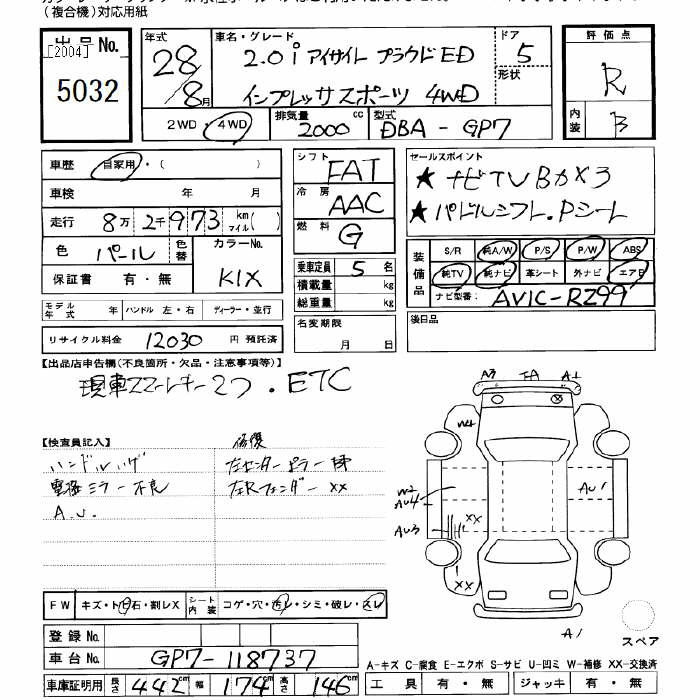 (複合機)対応用紙
出品No.
[2004]
5032
年式
28
8月
車名・グレード
2.0i アイサイト プラウドED
インプレッサスポーツ 4WD
ドア
5
形状
2WD・4WD
排気量
2000 cc
型式
DBA-GP7
評価点
R
内装
B
車歴 自家用・( )
車検 年 月
走行 8万2千973 km マイル( )
色 パール 色替
カラーNo.
K1X
保証書 有・無
モデル年式 年 ハンドル 左・右 ディーラー・並行
リサイクル料金 12030 円 預託済
シフト FAT
冷房 AAC
燃料 G
乗車定員 5 名
積載量 kg
総重量 kg
名変期限
月 日
セールスポイント
★ ナビTVBカメラ
★ パドルシフト.Pシート
装備品
S/R 純A/W P/S P/W ABS
純TV 純ナビ 革シート 外ナビ エアB
ナビ型番: AVIC-RZ99
後日品
【出品店申告欄(不良箇所・欠品・注意事項等)】
現車スマートキー2つ.ETC
【検査員記入】
修復
ハンドルハゲ
左センターピラー
ミラー不良
左Rフェンダー XX
A.U.
A3
A1
W4
W2
AU4
AU3
XX
AU1
XX
A1
スペア
FW キズ・ト石・割レX
シート内装 コゲ・穴・汚レ・シミ・破レ・スレ
登録No.
車台No. GP7-118737
車庫証明用 長さ 442cm 幅 174cm 高さ 146cm
A-キズ C-腐食 E-エクボ S-サビ U-凹ミ W-補修 XX-交換済
工具 有・無 ジャッキ 有・無